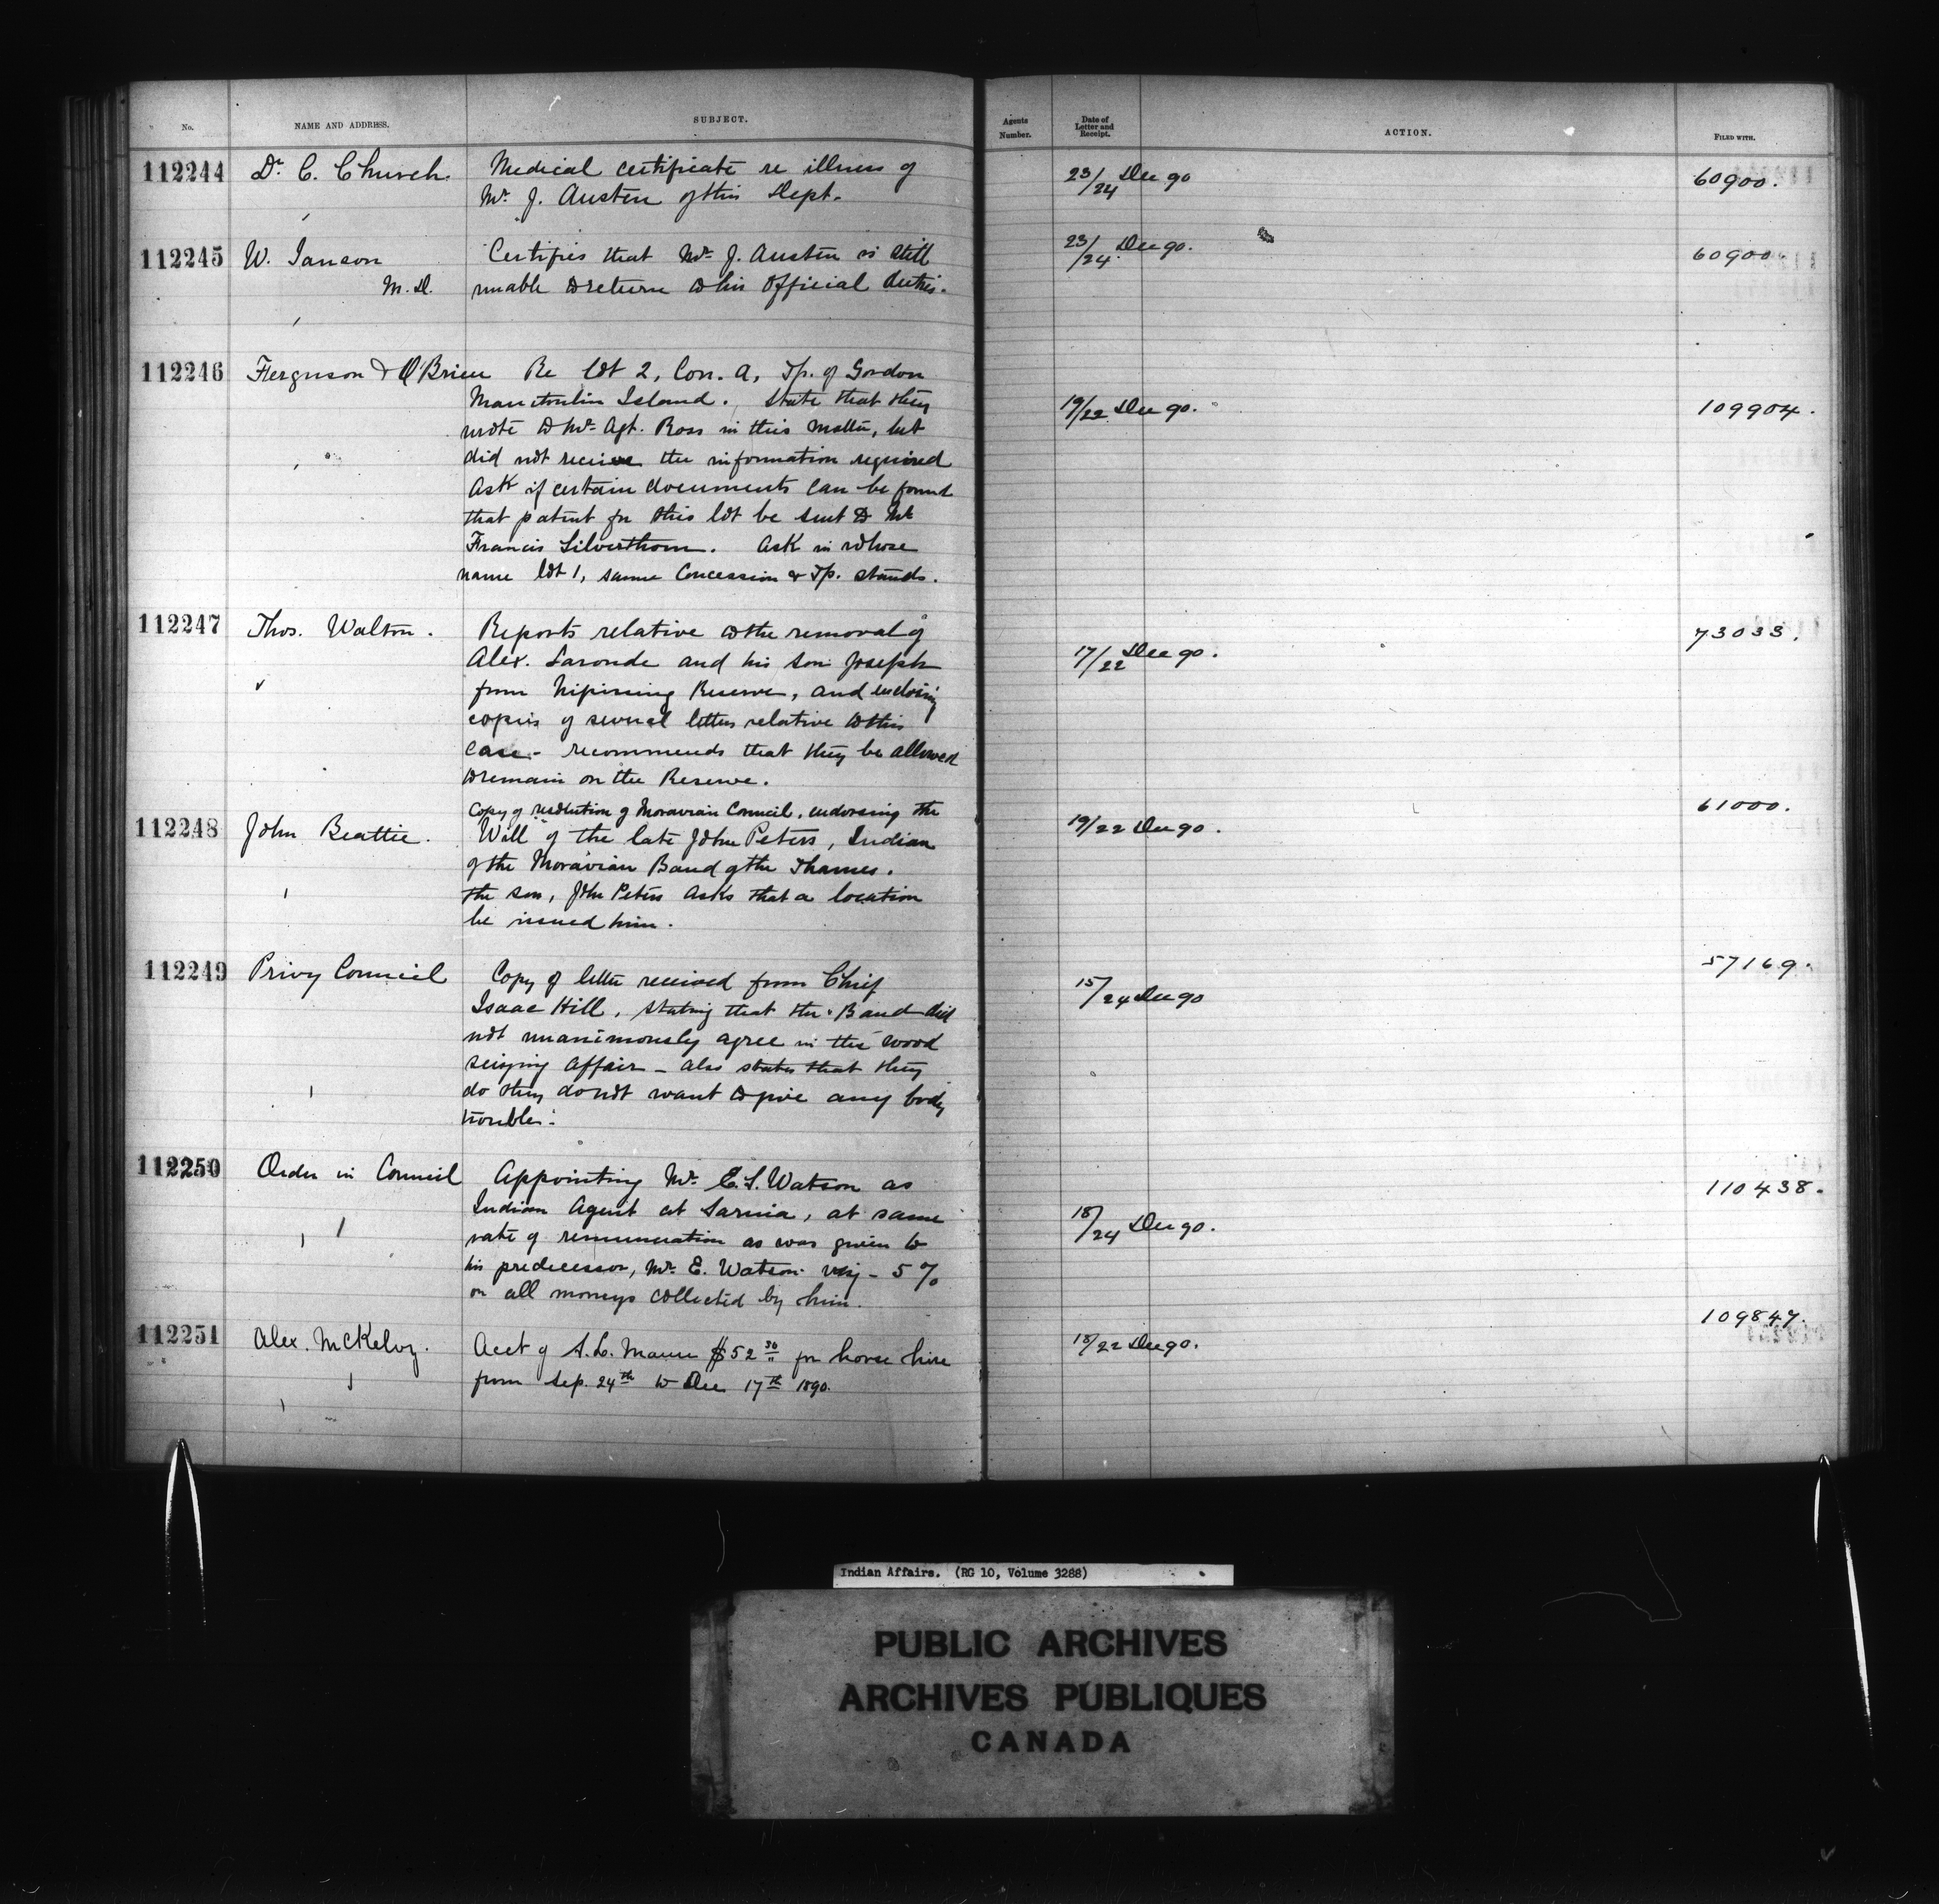 No.
NAME AND ADDRESS.
SUBJECT.
Agents Number.
Date of Letter and Receipt.
ACTION.
FILED WITH.
112244 Dr. C. Church. Medical certificate re illness of 23/24 Dec 90 60900.
Mr. J. Austen of this Dept.
112245 W. Ianson Certifies that Mr. J. Austen is still 23/24 Dec 90. 60900
M.D. unable to return to his Official duties.
112246 Ferguson & O'Brien Re lot 2, Con. A, Tp. of Gordon
Manitoulin Island. State that they 19/22 Dec 90. 109904.
wrote to Mr. Agt. Ross in this matter, but
did not receive the information required
Ask if certain documents can be found
that patent for this lot be sent to Mr
Francis Silverthorn. Ask in whose
name lot 1, same Concession & Tp. stands.
112247 Thos. Walton. Reports relative to the removal of 73033.
Alex. Laronde and his son Joseph 17/22 Dec 90.
from Nipissing Reserve, and enclosing
copies of several letters relative to this
case - recommends that they be allowed
to remain on the Reserve.
Copy of resolution of Moravian Council, endorsing the 61000.
112248 John Beattie. Will of the late John Peters, Indian 19/22 Dec 90.
of the Moravian Band of the Thames.
The son, John Peters asks that a location
be issued him.
112249 Privy Council Copy of letter received from Chief 57169.
Isaac Hill, stating that the Band did 15/24 Dec 90
not unanimously agree in the wood
seizing affair - also states that they
do they do not want to give any body
trouble.
112250 Order in Council Appointing Mr. E.S. Watson as 110438.
Indian Agent at Sarnia, at same 18/24 Dec 90.
rate of remuneration as was given to
his predecessor, Mr. E. Watson viz - 5 %
on all moneys collected by him.
109847.
112251 Alex. McKelvey. Acct of S.L. Mann $52 50 for horse hire 18/22 Dec 90.
from Sep. 24th to Dec 17th 1890.
Indian Affairs. (RG 10, Volume 3288)
PUBLIC ARCHIVES
ARCHIVES PUBLIQUES
CANADA